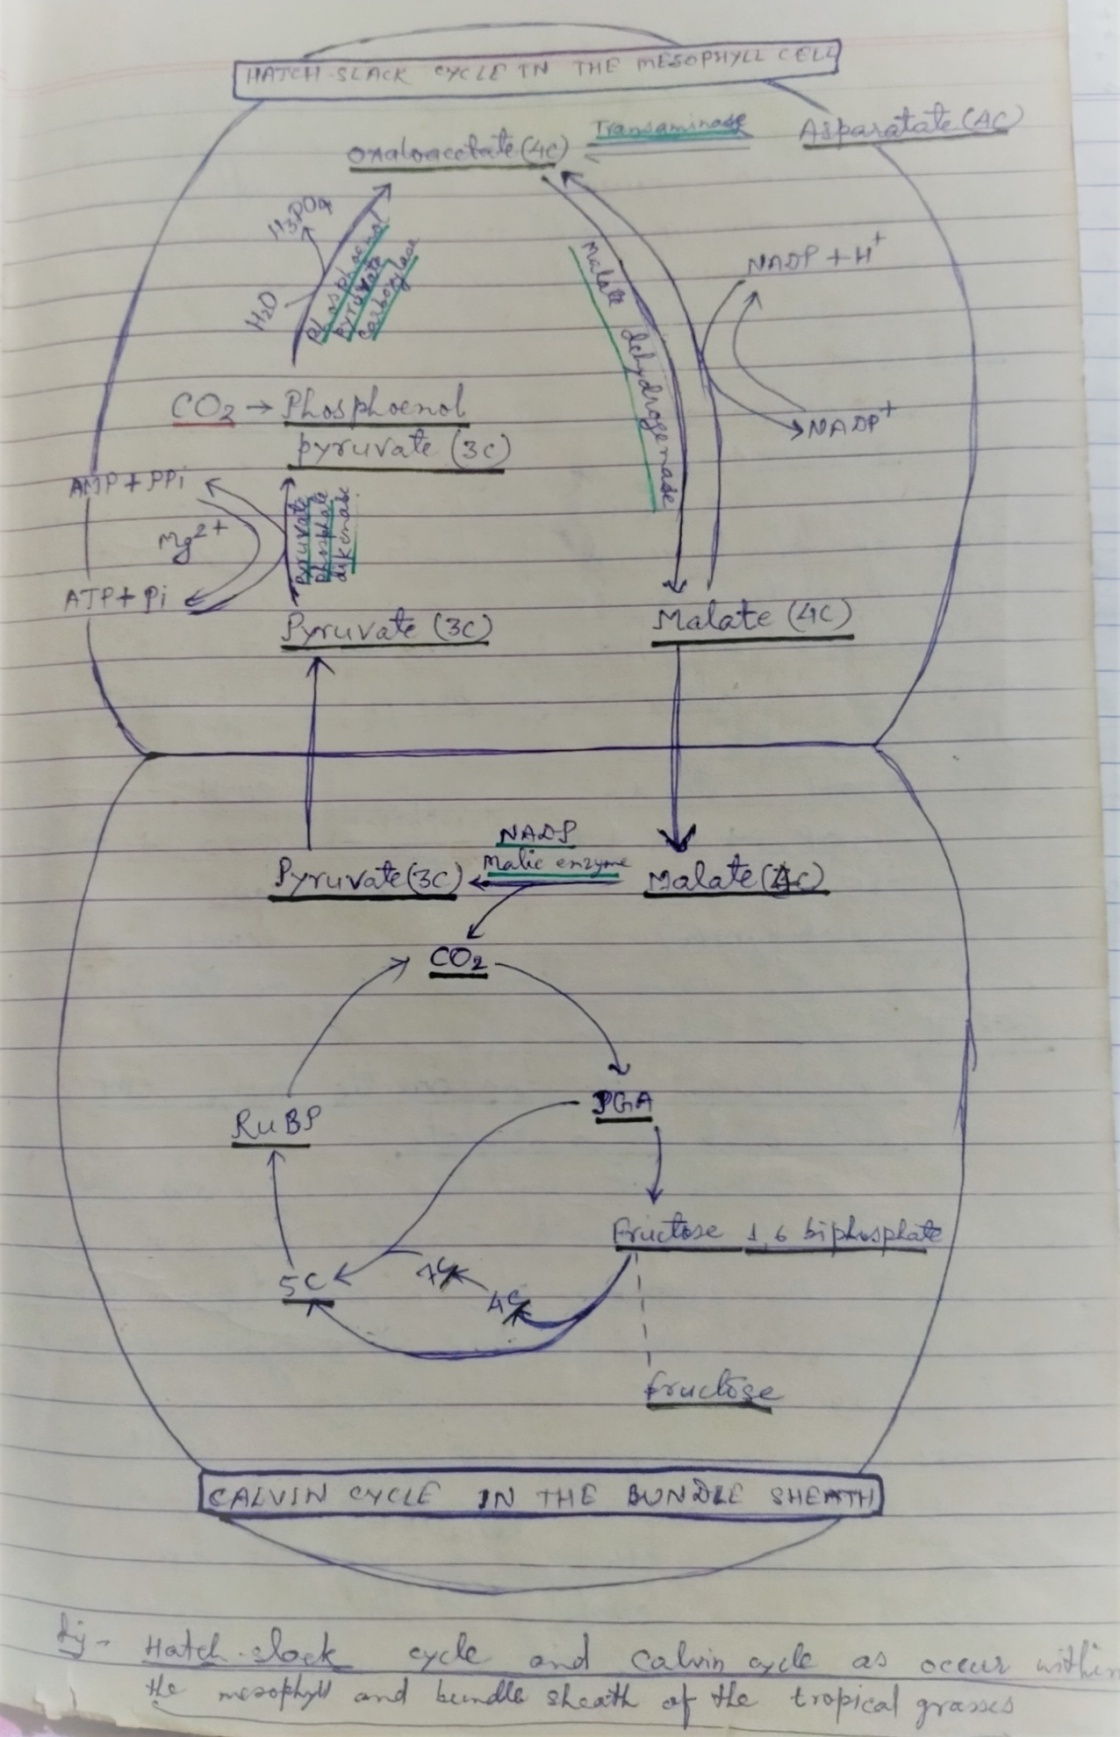 HATCH-SLACK CYCLE IN THE MESOPHYLL CELL
Oxaloacetate (4C)
Transaminase
Asparatate (4C)
H3PO4
H2O
Phosphoenol
pyruvate
carboxylase
Malate dehydrogenase
NADP + H+
NADP+
CO2 → Phosphoenol
pyruvate (3C)
AMP + PPi
Mg2+
ATP + Pi
Pyruvate
phosphate
dikenase
Pyruvate (3C)
Malate (4C)
NADP
Malic enzyme
Pyruvate (3C)
Malate (4C)
CO2
RuBP
PGA
Fructose 1,6 biphosphate
5C
7C
4C
fructose
CALVIN CYCLE IN THE BUNDLE SHEATH
fig - Hatch-slack cycle and Calvin cycle as occur within
the mesophyll and bundle sheath of the tropical grasses